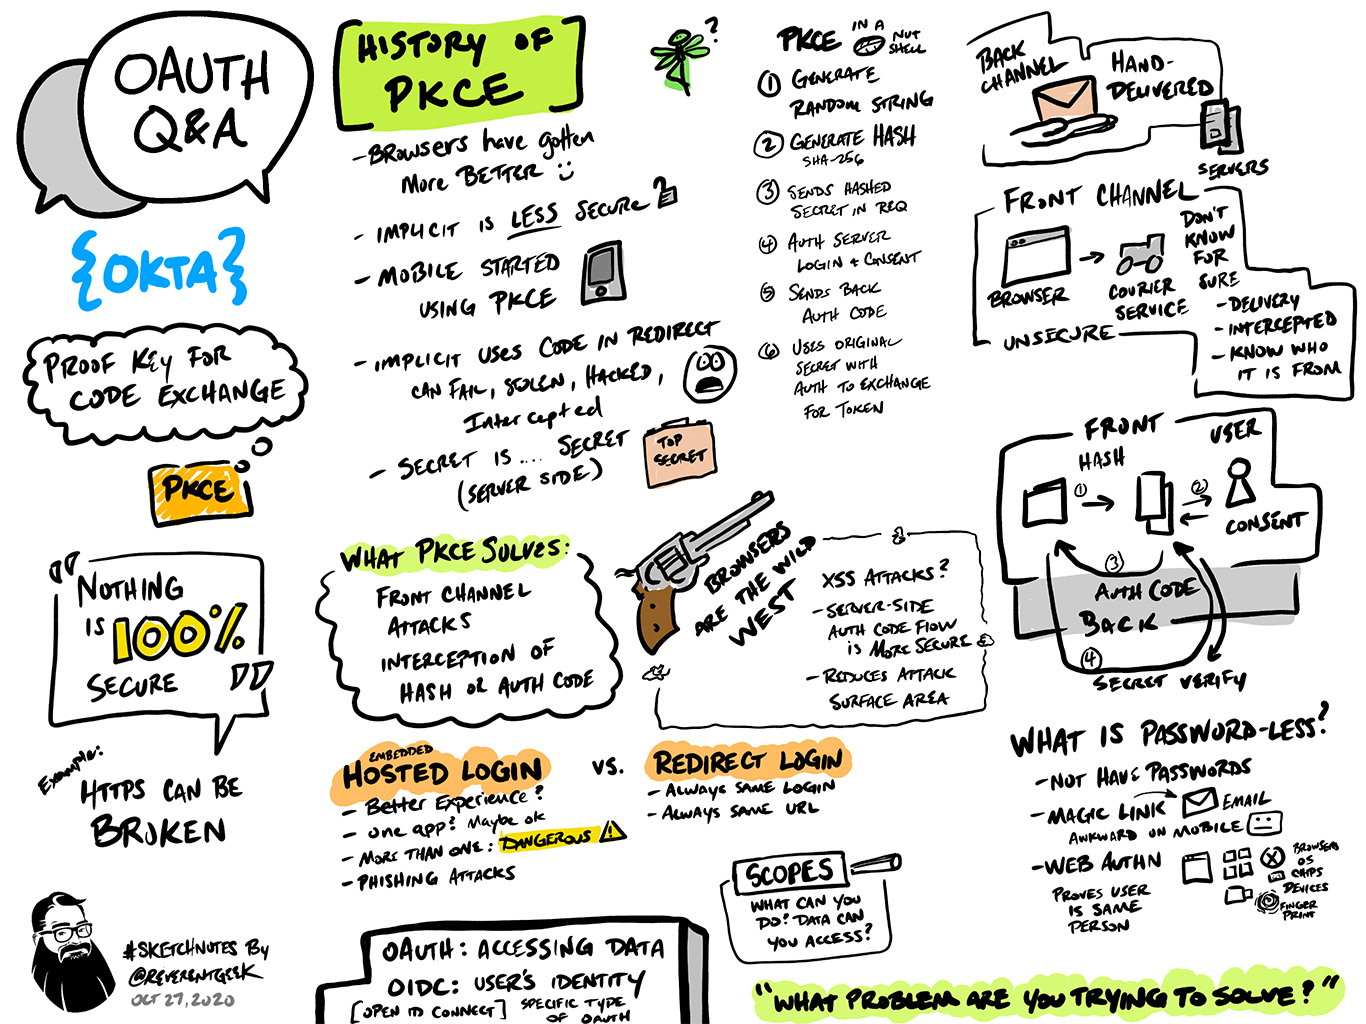 OAUTH
Q&A
{OKTA}
PROOF KEY FOR
CODE EXCHANGE
PKCE
"NOTHING
IS 100%
SECURE"
Example:
HTTPS CAN BE
BROKEN
#SKETCHNOTES By
@REVERENTGEEK
OCT 27, 2020
HISTORY OF
PKCE
- BROWSERS have gotten
More BETTER
- IMPLICIT IS LESS SECURE?
- MOBILE STARTED
USING PKCE
- IMPLICIT USES CODE IN REDIRECT
CAN FAIL, STOLEN, HACKED,
Intercepted
- SECRET IS .... SECRET
(SERVER SIDE)
TOP
SECRET
?
WHAT PKCE SOLVES:
FRONT CHANNEL
ATTACKS
INTERCEPTION OF
HASH OR AUTH CODE
BROWSERS
ARE THE WILD
WEST
XSS ATTACKS?
- SERVER-SIDE
AUTH CODE FLOW
IS MORE SECURE
- REDUCES ATTACK
SURFACE AREA
EMBEDDED
HOSTED LOGIN
- Better Experience?
- One app? Maybe ok
- MORE THAN ONE: DANGEROUS !
- PHISHING ATTACKS
VS.
REDIRECT LOGIN
- ALWAYS SAME LOGIN
- ALWAYS SAME URL
SCOPES
WHAT CAN YOU
DO? DATA CAN
YOU ACCESS?
OAUTH: ACCESSING DATA
OIDC: USER'S IDENTITY
[OPEN ID CONNECT] SPECIFIC TYPE
OF OAUTH
PKCE IN A NUT
SHELL
1 GENERATE
RANDOM STRING
2 GENERATE HASH
SHA-256
3 SENDS HASHED
SECRET IN REQ
4 AUTH SERVER
LOGIN + CONSENT
5 SENDS BACK
AUTH CODE
6 USES ORIGINAL
SECRET WITH
AUTH TO EXCHANGE
FOR TOKEN
BACK
CHANNEL
HAND-
DELIVERED
SERVERS
FRONT CHANNEL
BROWSER
COURIER
SERVICE
UNSECURE
DON'T
KNOW
FOR
SURE
- DELIVERY
- INTERCEPTED
- KNOW WHO
IT IS FROM
FRONT
HASH
USER
1
2
CONSENT
3
AUTH CODE
BACK
4
SECRET VERIFY
WHAT IS PASSWORD-LESS?
- NOT HAVE PASSWORDS
- MAGIC LINK EMAIL
AWKWARD ON MOBILE
- WEB AUTHN
PROVES USER
IS SAME
PERSON
BROWSERS
OS
CHIPS
DEVICES
FINGER
PRINT
"WHAT PROBLEM ARE YOU TRYING TO SOLVE?"